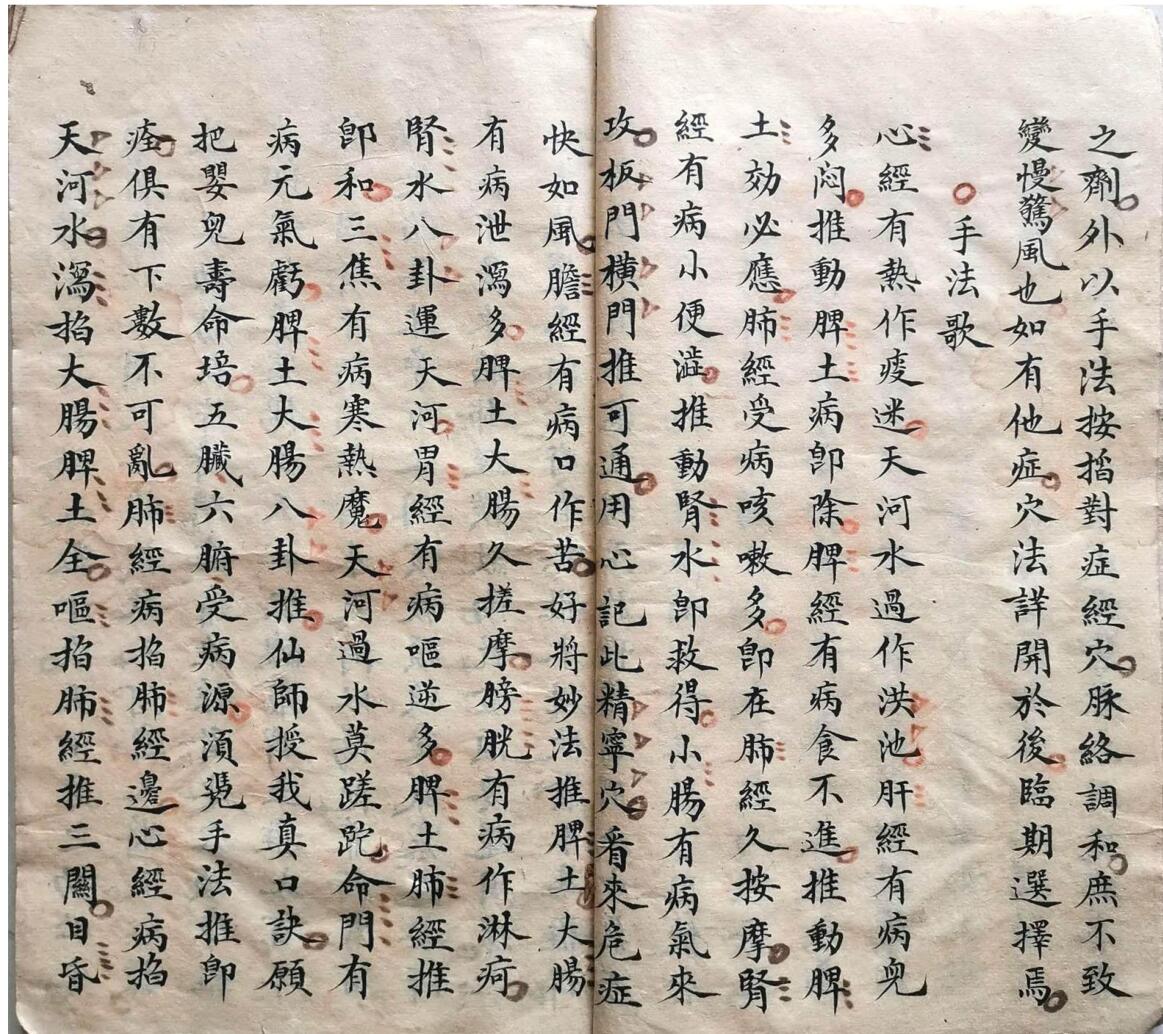 之劑外以手法按掐對症經穴脉絡調和庶不致
變慢驚風也如有他症穴法詳開於後臨期選擇焉
手法歌
心經有熱作痰迷天河水過作洪池肝經有病兒
多悶推動脾土病卽除脾經有病食不進推動脾
土効必應肺經受病咳嗽多卽在肺經久按摩腎
經有病小便澁推動腎水卽救得小腸有病氣來
攻板門橫門推可通用心記此精寧穴看來危症
快如風膽經有病口作苦好將妙法推脾土大腸
有病泄瀉多脾土大腸久搓摩膀胱有病作淋疴
腎水八卦運天河胃經有病嘔逆多脾土肺經推
卽和三焦有病寒熱魔天河過水莫蹉跎命門有
病元氣虧脾土大腸八卦推仙師授我真口訣願
把嬰兒壽命培五臟六腑受病源湏凴手法推卽
痊俱有下數不可亂肺經病掐肺經邊心經病掐
天河水瀉掐大腸脾土全嘔掐肺經推三關目昏